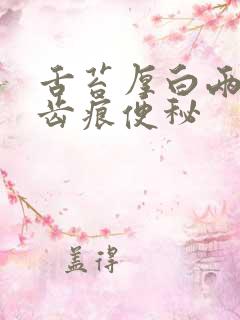 舌苔厚白两
齿痕便秘
盖得